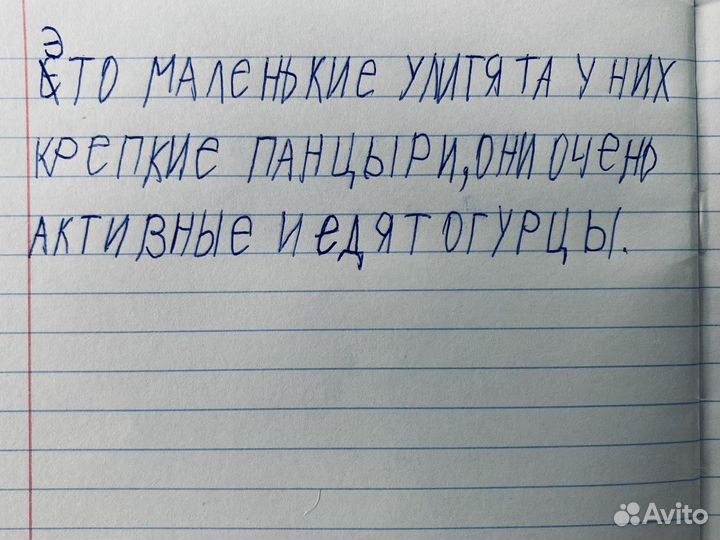 Это маленькие улитята у них
крепкие панцыри, они очень
активные и едят огурцы.
Avito